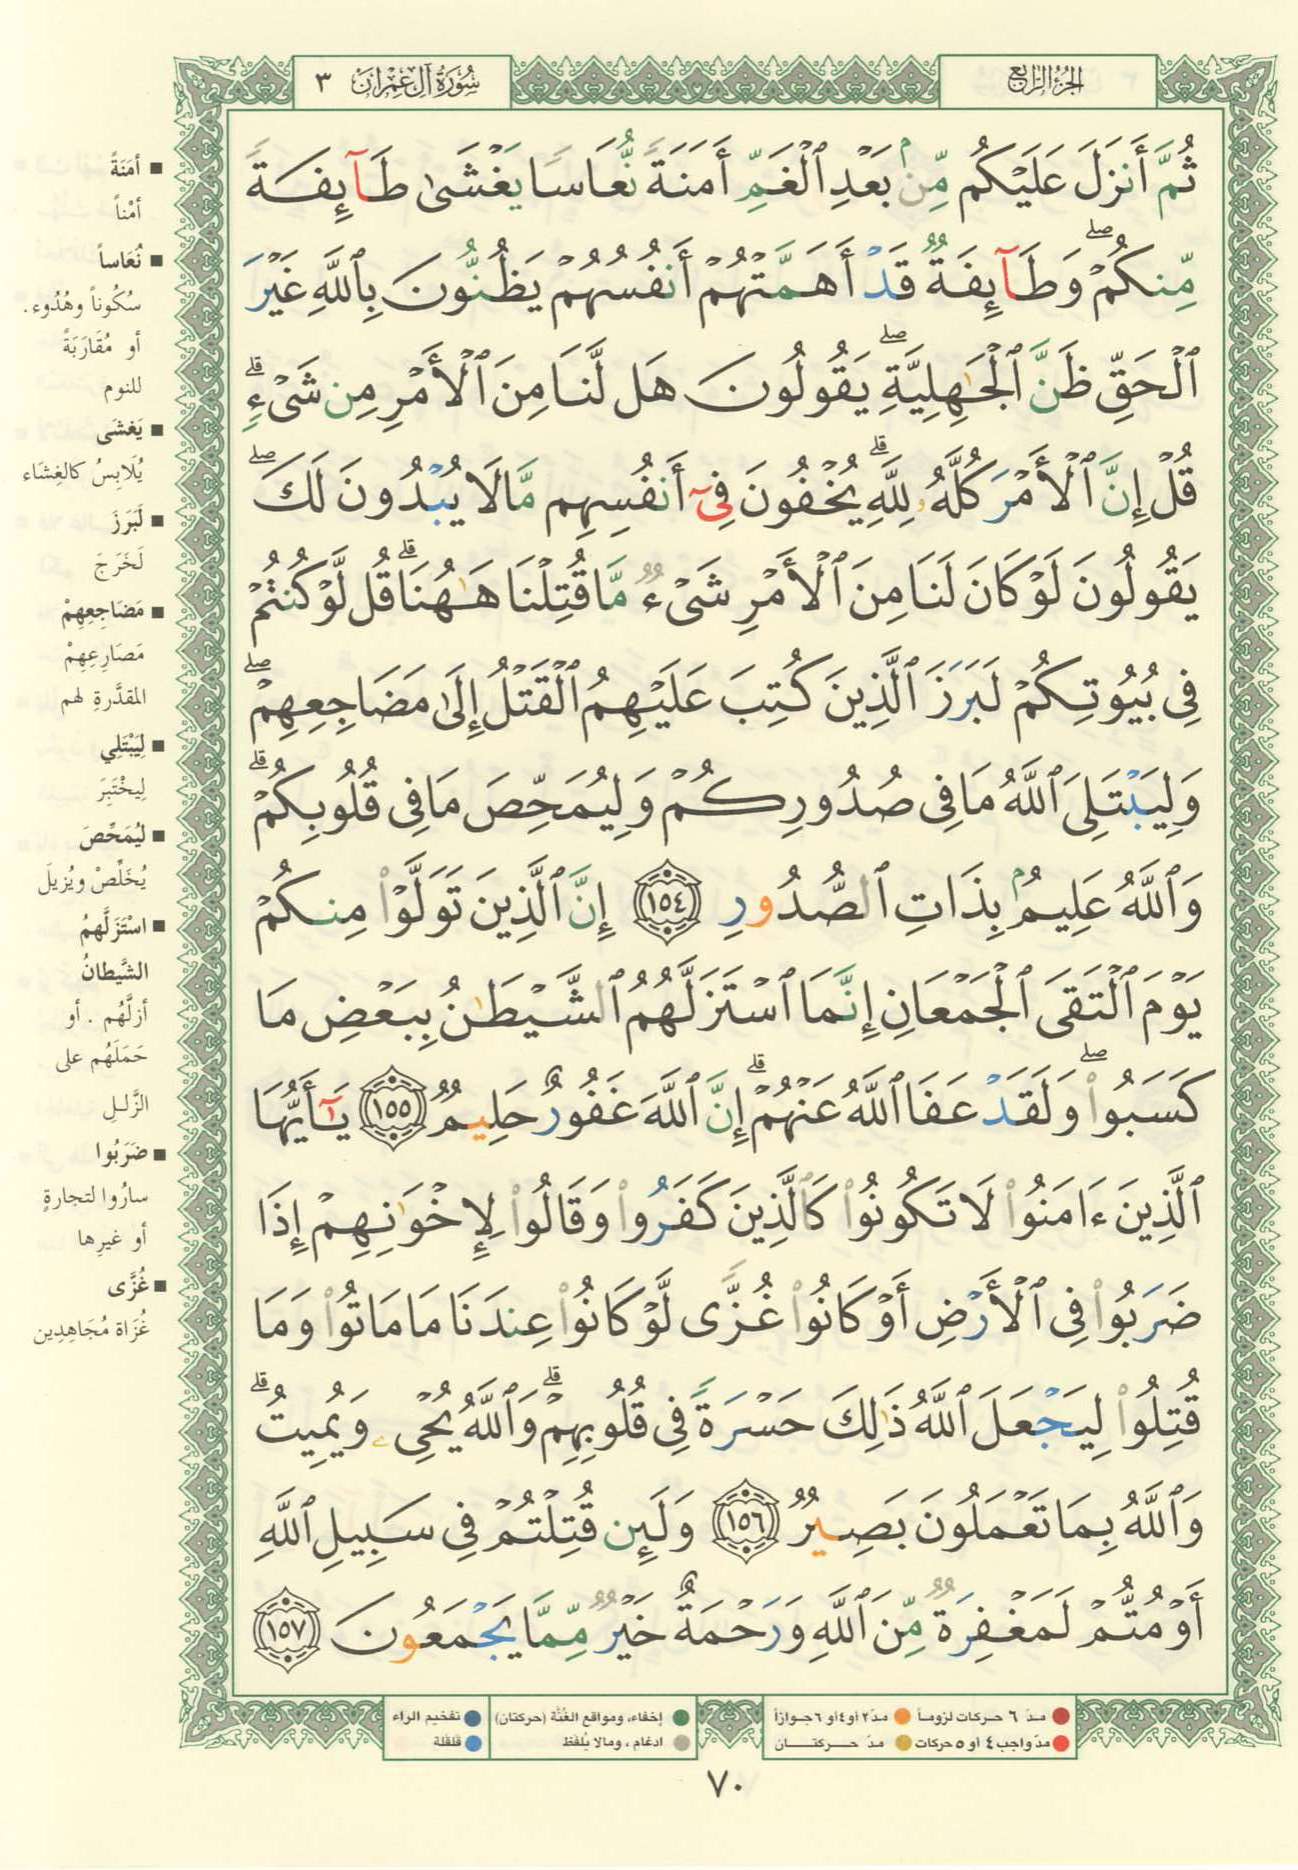 الجزء الرابع
سورة آل عمران ٣
ثُمَّ أَنزَلَ عَلَيْكُم مِّنۢ بَعْدِ ٱلْغَمِّ أَمَنَةً نُّعَاسًا يَغْشَىٰ طَآئِفَةً
مِّنكُمْ ۖ وَطَآئِفَةٌ قَدْ أَهَمَّتْهُمْ أَنفُسُهُمْ يَظُنُّونَ بِٱللَّهِ غَيْرَ
ٱلْحَقِّ ظَنَّ ٱلْجَٰهِلِيَّةِ ۖ يَقُولُونَ هَل لَّنَا مِنَ ٱلْأَمْرِ مِن شَىْءٍ ۗ
قُلْ إِنَّ ٱلْأَمْرَ كُلَّهُۥ لِلَّهِ ۗ يُخْفُونَ فِىٓ أَنفُسِهِم مَّا لَا يُبْدُونَ لَكَ ۖ
يَقُولُونَ لَوْ كَانَ لَنَا مِنَ ٱلْأَمْرِ شَىْءٌ مَّا قُتِلْنَا هَٰهُنَا ۗ قُل لَّوْ كُنتُمْ
فِى بُيُوتِكُمْ لَبَرَزَ ٱلَّذِينَ كُتِبَ عَلَيْهِمُ ٱلْقَتْلُ إِلَىٰ مَضَاجِعِهِمْ ۖ
وَلِيَبْتَلِىَ ٱللَّهُ مَا فِى صُدُورِكُمْ وَلِيُمَحِّصَ مَا فِى قُلُوبِكُمْ ۗ
وَٱللَّهُ عَلِيمٌۢ بِذَاتِ ٱلصُّدُورِ ١٥٤ إِنَّ ٱلَّذِينَ تَوَلَّوْا۟ مِنكُمْ
يَوْمَ ٱلْتَقَى ٱلْجَمْعَانِ إِنَّمَا ٱسْتَزَلَّهُمُ ٱلشَّيْطَٰنُ بِبَعْضِ مَا
كَسَبُوا۟ ۖ وَلَقَدْ عَفَا ٱللَّهُ عَنْهُمْ ۗ إِنَّ ٱللَّهَ غَفُورٌ حَلِيمٌ ١٥٥ يَٰٓأَيُّهَا
ٱلَّذِينَ ءَامَنُوا۟ لَا تَكُونُوا۟ كَٱلَّذِينَ كَفَرُوا۟ وَقَالُوا۟ لِإِخْوَٰنِهِمْ إِذَا
ضَرَبُوا۟ فِى ٱلْأَرْضِ أَوْ كَانُوا۟ غُزًّى لَّوْ كَانُوا۟ عِندَنَا مَا مَاتُوا۟ وَمَا
قُتِلُوا۟ لِيَجْعَلَ ٱللَّهُ ذَٰلِكَ حَسْرَةً فِى قُلُوبِهِمْ ۗ وَٱللَّهُ يُحْىِۦ وَيُمِيتُ ۗ
وَٱللَّهُ بِمَا تَعْمَلُونَ بَصِيرٌ ١٥٦ وَلَئِن قُتِلْتُمْ فِى سَبِيلِ ٱللَّهِ
أَوْ مُتُّمْ لَمَغْفِرَةٌ مِّنَ ٱللَّهِ وَرَحْمَةٌ خَيْرٌ مِّمَّا يَجْمَعُونَ ١٥٧
■ أَمَنَةً
أمْناً
■ نُعَاساً
سُكُوناً وهُدُوء.
أو مُقَارَبَةً
للنوم
■ يَغشَى
يُلَابِسُ كالغِشَاء
■ لَبَرَزَ
لَخَرَجَ
■ مَضَاجِعِهِمْ
مَصَارِعِهِمْ
المقدَّرةِ لهم
■ لِيَبْتَلِي
لِيخْتَبِرَ
■ لِيُمَحِّصَ
يُخَلِّصَ ويُزيلَ
■ اسْتَزَلَّهمُ
الشَّيطانُ
أزلَّهُم . أو
حَمَلَهُم على
الزَّلـلِ
■ ضَرَبُوا
سارُوا لتجارةٍ
أو غيرِها
■ غُزًّى
غُزَاة مُجَاهِدِين
مدّ ٦ حركات لزوماً
مدّ ٢ أو ٤ أو ٦ جـوازاً
مدّ واجب ٤ أو ٥ حركات
مدّ حـركتــان
إخفاء، ومواقع الغُنَّة (حركتان)
ادغام ، ومالا يُلفَظ
تفخيم الراء
قلقلة
٧٠